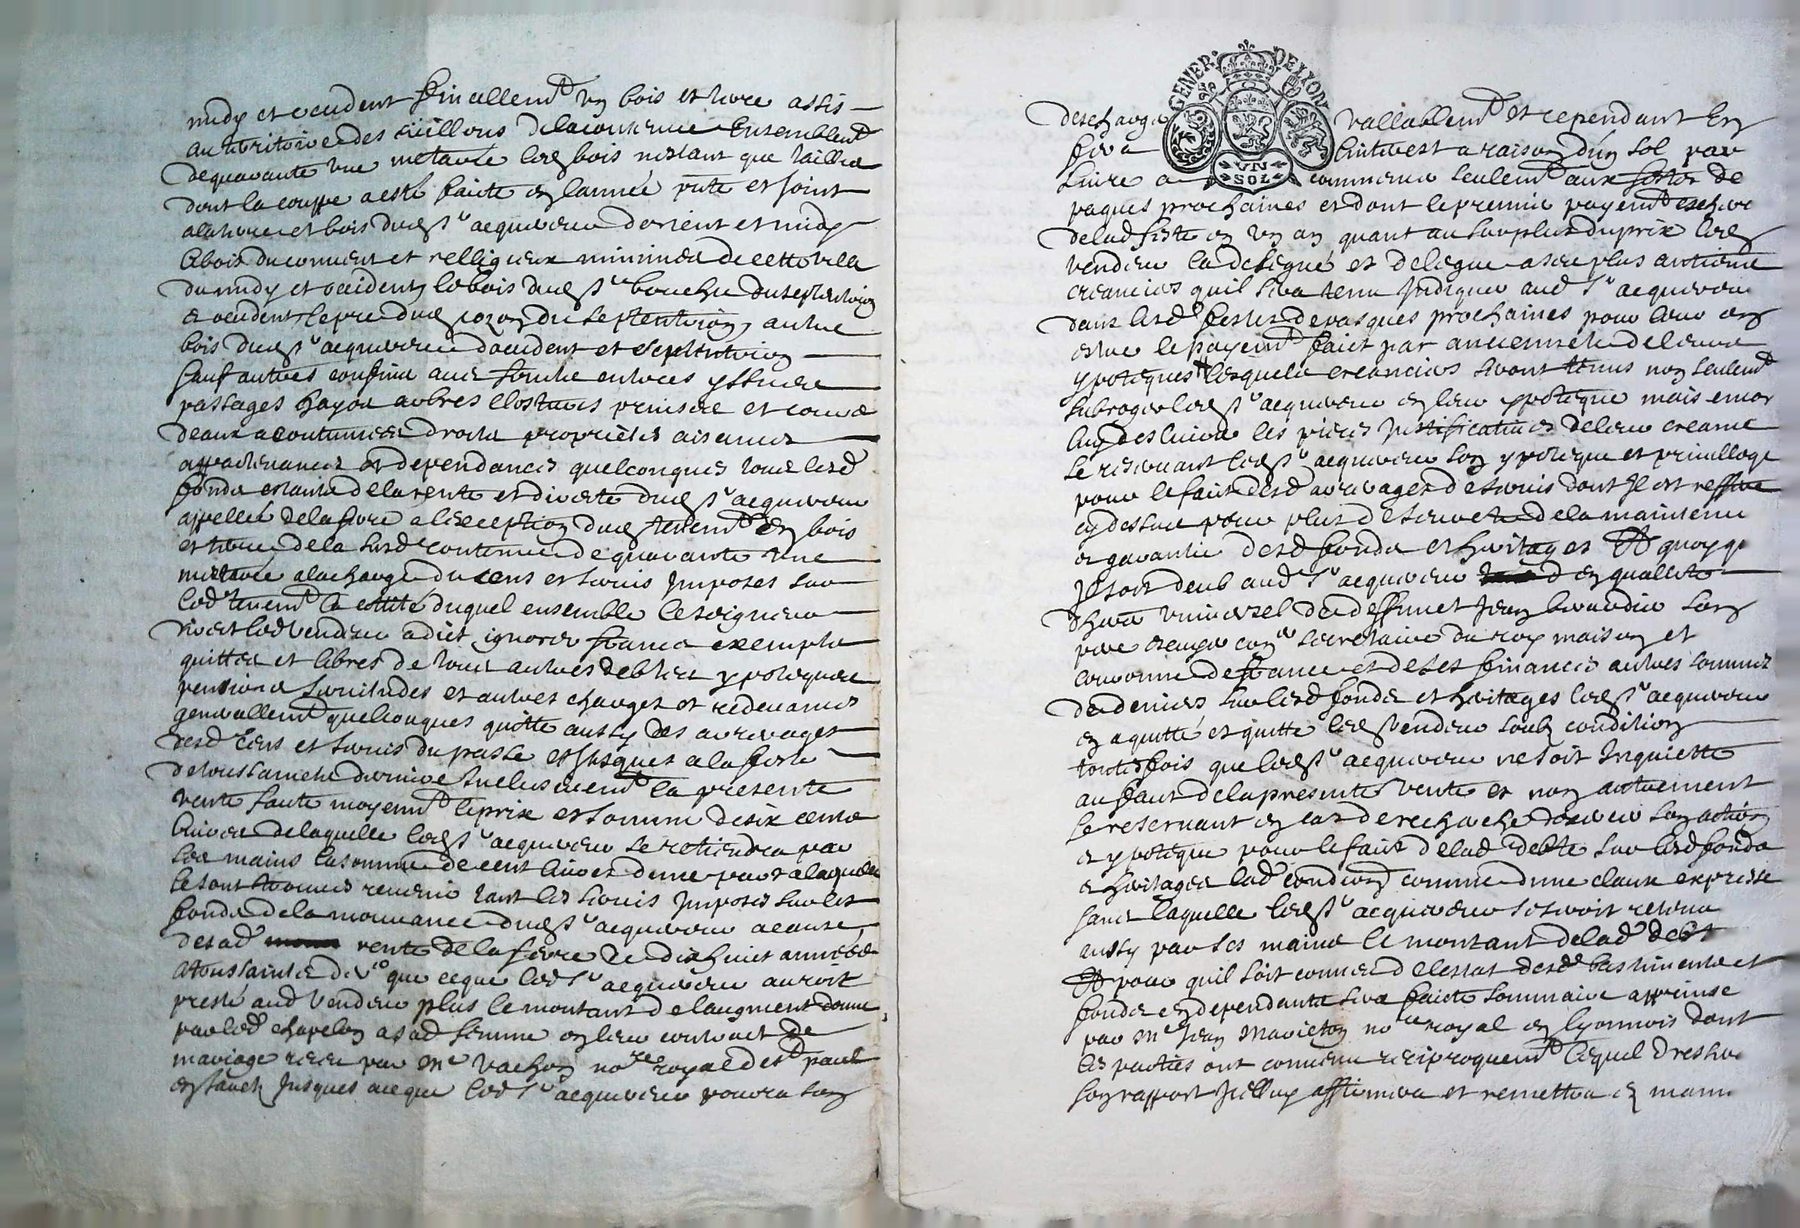 midy et occident finallemt un bois et terre assis
au territoire des seillons de la contenue ensemblemt
de quarante une metanle led bois nestant que taillis
dont la couppe a esté faite en lannée pnte et joint
a la terre et bois dud sr acquereur dorient et midy
le bois du couvent et relligieux minimes de cette ville
du midy et occident le bois dud sr
et occident le pre dud du septentrion autre
bois dud sr acquereur doccident et septentrion
sauf autres confins avec entrees yssues
passages hayes arbres prinse et cours
deaux acoutumes droits proprietés aisances
appartenances et dependances quelconques tous lesd
fonds estants de la rente et directe dud sr acquereur
appellée de la fierre a lexception dud tenemt en bois
et terre de la susd contenue de quarante une
metanle a la charge du cens et servis imposés sur
led tenemt la cottité duquel ensemble le seigneur
led vendeur a dict ignorer francs exempts
quittes et libres de tous autres debtes ypoteques
pensions servitudes et autres charges et redevances
generallemt quelconques quitte aussy des arrerages
desd cens et servis du passé et jusques a la feste
de toussaincts derniere inclusivemt la presente
vente faite moyennt le prix et somme de six cents
livres de laquelle led sr acquereur se retiendra par
ses mains la somme de cent livres dune part a laquelle
se sont trouvés revenir tant les servis imposés sur les
fonds de la mouvance dud sr acquereur a cause
de sad rente de la fierre de dix huict années
a toussaints der que ce que led sr acquereur auroit
presté aud vendeur plus le montant de laugment donné
par led chapelon a sad femme en leur contract de
mariage receu par me vachon nore royal de st paul
en jarets jusques a ce que led sr acquereur pourra sen
descharger vallablemt et cependant en
fera linterest a raison dun sol par
livre a commencer seulemt aux festes de
paques prochaines et dont le premier payemt eschera
de lad feste en un an quant au surplus du prix led
vendeur la delegué et delegue a ses plus antiens
creanciers quil sera tenu jndiquer aud sr acquereur
dans lesd festes de pasques prochaines pour leur en
estre le payemt faict par ancienneté de leurs
ypoteques lesquels creanciers seront tenus non seulemt
subroger led sr acquereur en leur ypoteque mais encor
luy deslivrer les pieces justificatives de leur creance
se reservant led sr acquereur son ypoteque et privillege
pour le fait desd arrerages de servis dont
cy dessus pour plus de seureté de la maintenue
et garantie desd fonds et heritages Et quoyqu
jl soit deub aud sr acquereur en quallité
dheritier universel de deffunct jean son
pere escuyer coner secretaire du roy maison et
couronne de france et de ses finances autres sommes
de deniers sur lesd fonds et heritages led sr acquereur
en a quitté et quitte led vendeur soubs condition
toutesfois que led sr acquereur ne soit inquietté
au faict de la presente vente et non autrement
se reservant en cas de recherche son action
et ypoteque pour le fait de lad debte sur lesd fonds
et heritages lad condition comme dune clause expresse
sans laquelle led sr acquereur se seroit retenu
aussy par ses mains le montant de lad debt
Et pour quil soit convenu de lestat desd bastiments et
fonds en dependants sera faite sommaire apprinse
par me jean mavieton nore royal en lyonnois dont
les parties ont convenu reciproquemt lequel dressera
son rapport jcelluy affirmera et remettra en main
GENER DE LYON
UN
SOL